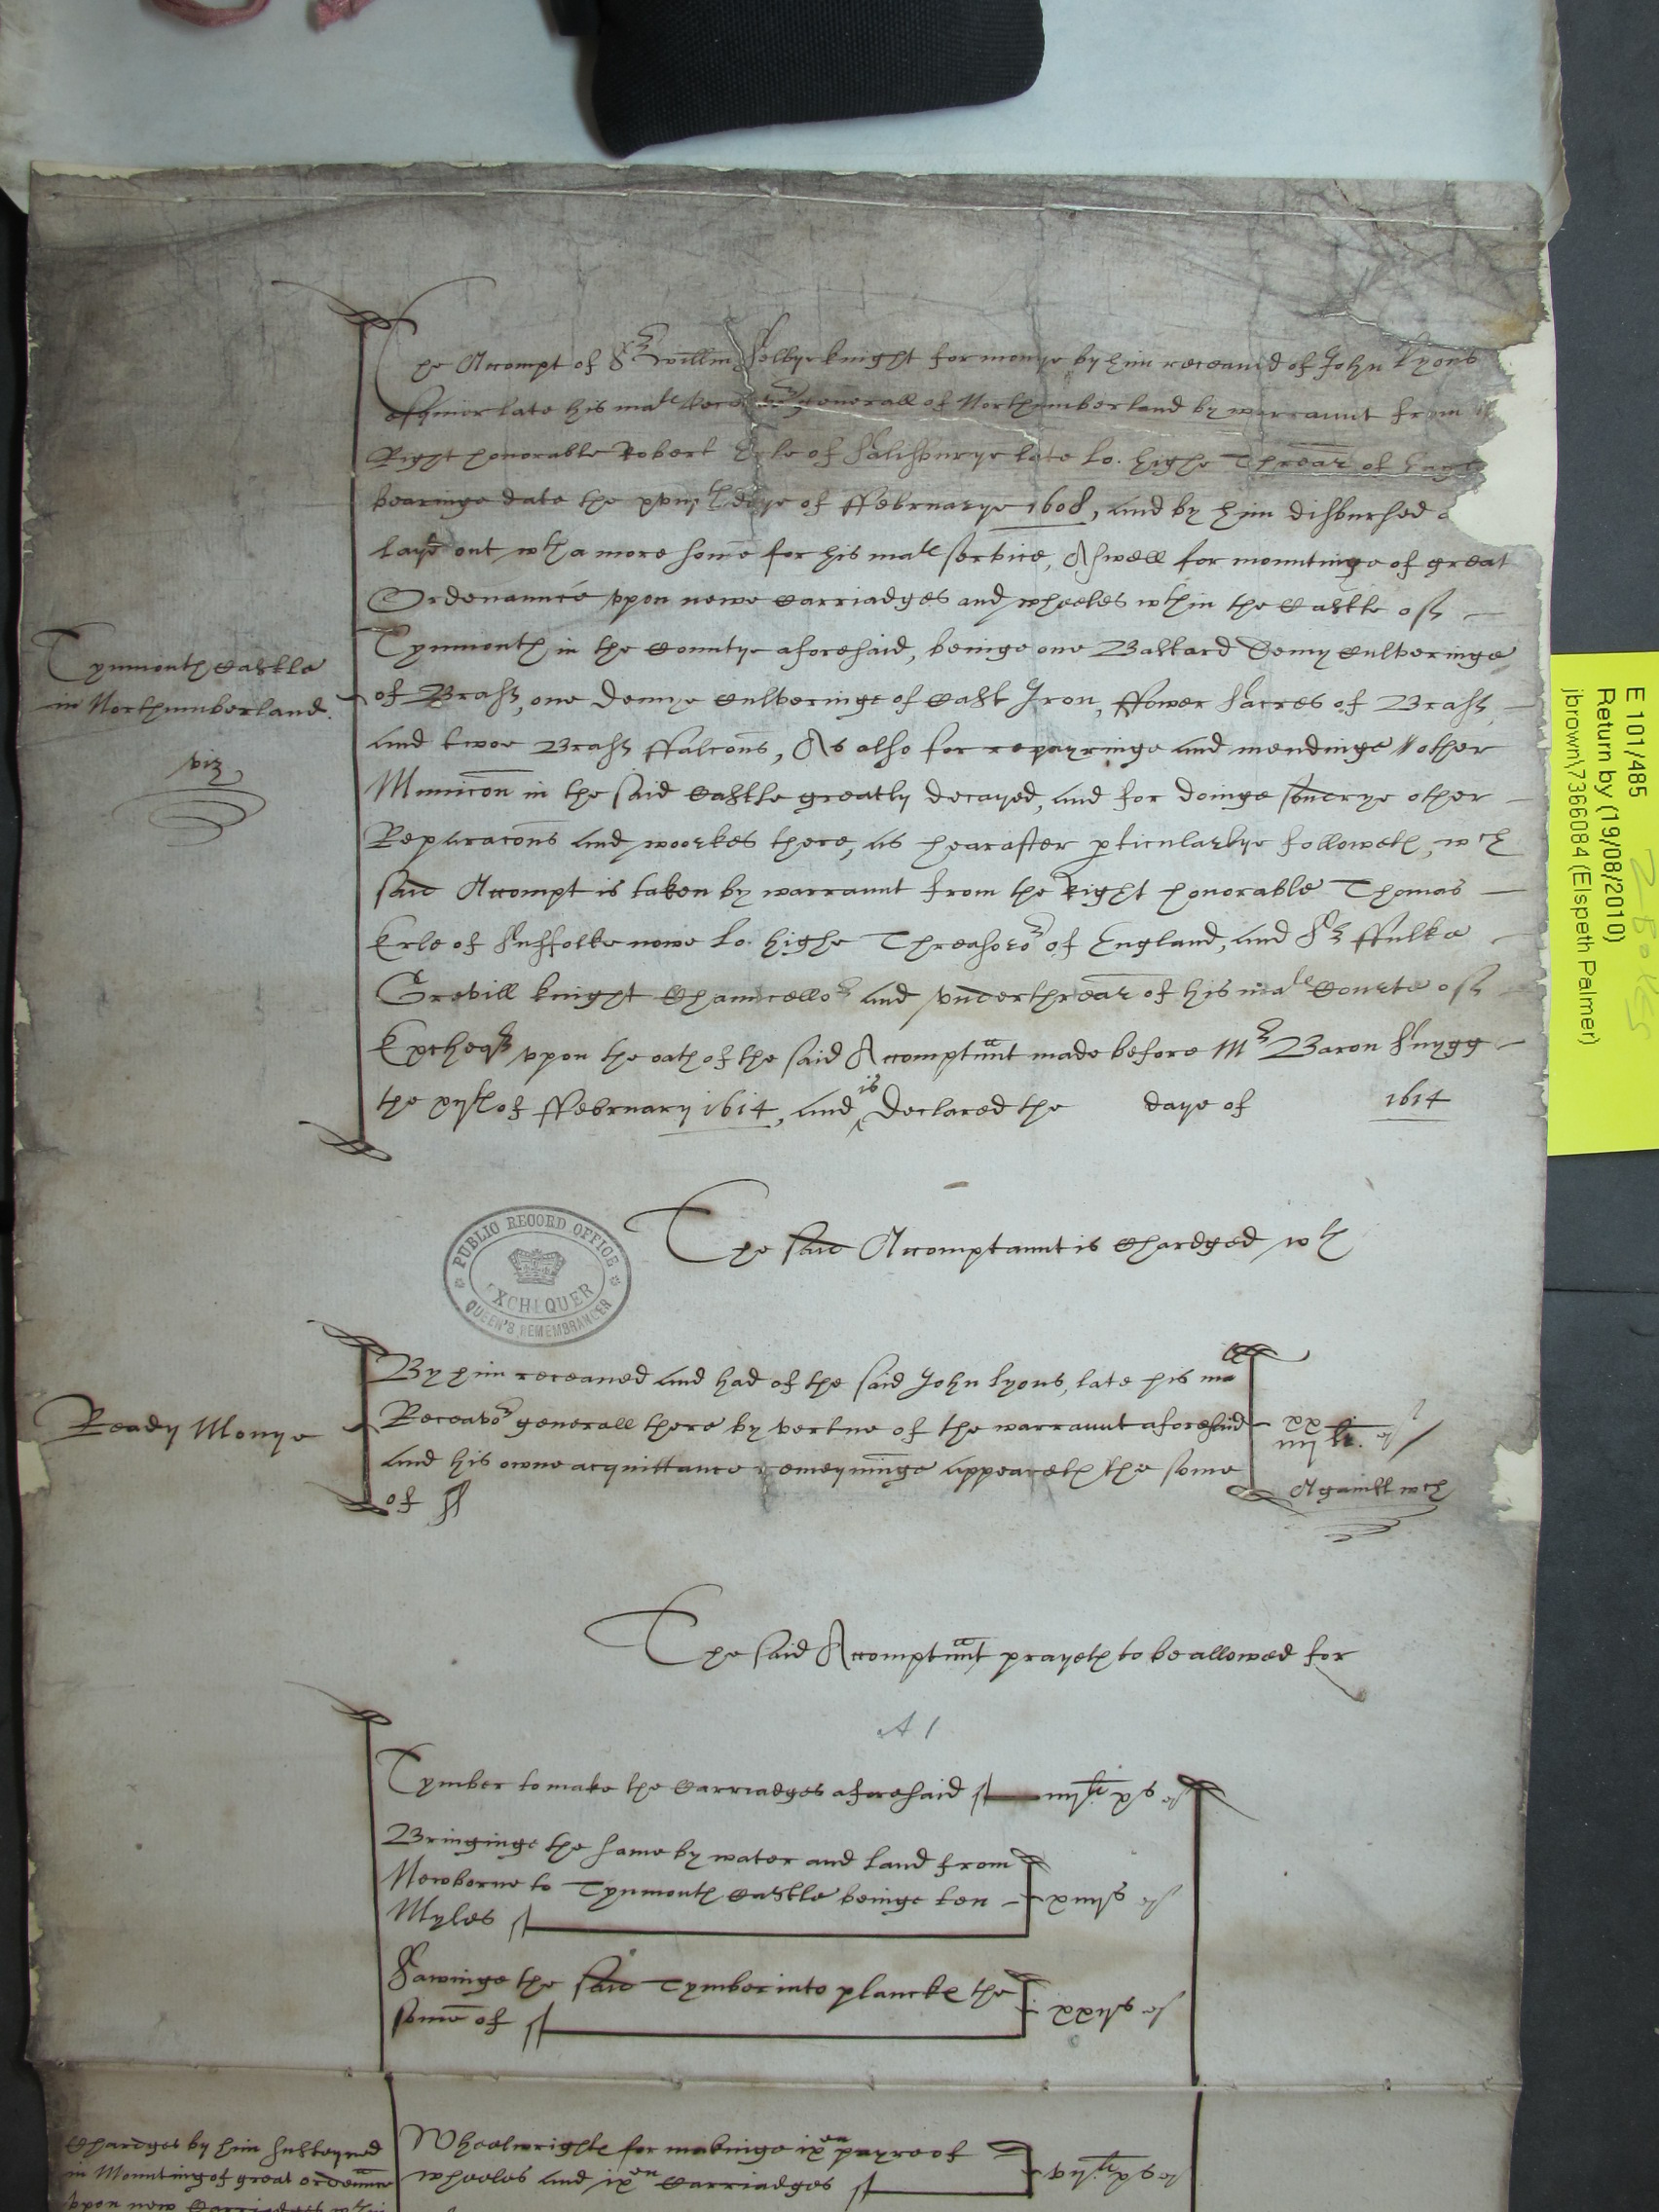 The Accompt of Sr Willm Selbye knight for monye by him receaued of John Lyons
esquier late his mats Receavor generall of Northumberland by warraunt from
Right honorable Robert Erle of Salisburye late Lo. highe Threar of
bearinge date the daye of ffebruarye 1608, and by him disbursed
laye out wth a more some for his mats service, Aswell for mountinge of great
Ordenaunce vpon newe Carriadges and wheeles wthin the Castle of
Tynmouth in the Countye aforesaid, beinge one Bastard Demy Culveringe
of Brass, one demye Culveringe of Cast Iron, ffower Sacres of Brass,
and twoe Brass ffalcons, As also for repayringe and mendinge other
Municon in the said Castle greatly decayed, and for doinge sondrye other
Reparacons and woorkes there, as hearafter pticularlye followeth, wch
said Accompt is taken by warraunt from the Right honorable Thomas
Erle of Suffolke nowe Lo. highe Threasoror of England, and Sr ffulke
Grevill knight Chauncellor and vnderthrear of his mats Courte of
Exchequer vpon the oath of the said Accomptant made before Mr Baron Snygg
the xijth of ffebruary 1614, and is Declared the daye of 1614
Tynmouth Castle
in Northumberland.
viz
The said Accomptaunt is Chardged wth
PUBLIC RECORD OFFICE
EXCHEQUER
QUEEN'S REMEMBRANCER
Ready Monye
By him receaued and had of the said John Lyons, late his ma
Receavor generall there by vertue of the warraunt aforesaid
and his owne acquittance remeyninge appeareth the some
of
xx
iiij li.
Against wch
The said Accomptant prayeth to be allowed for
A 1
Tymber to make the Carriadges aforesaid
Bringinge the same by water and land from
Newborne to Tynmouth Castle beinge ten
Myles
Sawinge the said Tymber into plancke the
some of
Chardges by him susteyned
in Mounting of great ordennce
vpon new Carriadges wthin
Wheelwrighte for makinge ixen payre of
wheeles and ixen Carriadges
E 101/485
Return by (19/08/2010)
jbrown\7366084 (Elspeth Palmer)